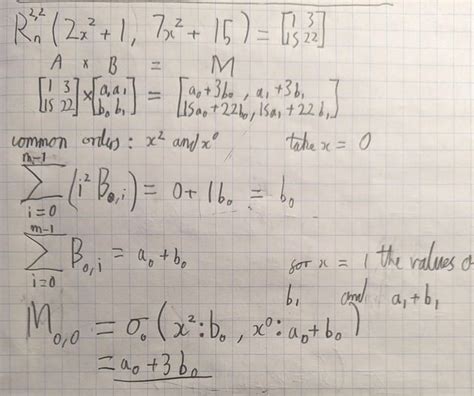 R_n^{2,2} (2x² + 1, 7x² + 15) = [1 3; 15 22]
A × B = M
[1 3; 15 22] × [a₀ a₁; b₀ b₁] = [a₀+3b₀, a₁+3b₁; 15a₀+22b₀, 15a₁+22b₁]
common orders: x² and x⁰ take x = 0
∑_{i=0}^{m-1} (i² B_{0,i}) = 0 + 1b₀ = b₀
∑_{i=0}^{m-1} B_{0,i} = a₀ + b₀
for x = 1 the values of
b₁ and a₁ + b₁
M_{0,0} = σ₀ (x²: b₀, x⁰: a₀ + b₀)
= a₀ + 3b₀